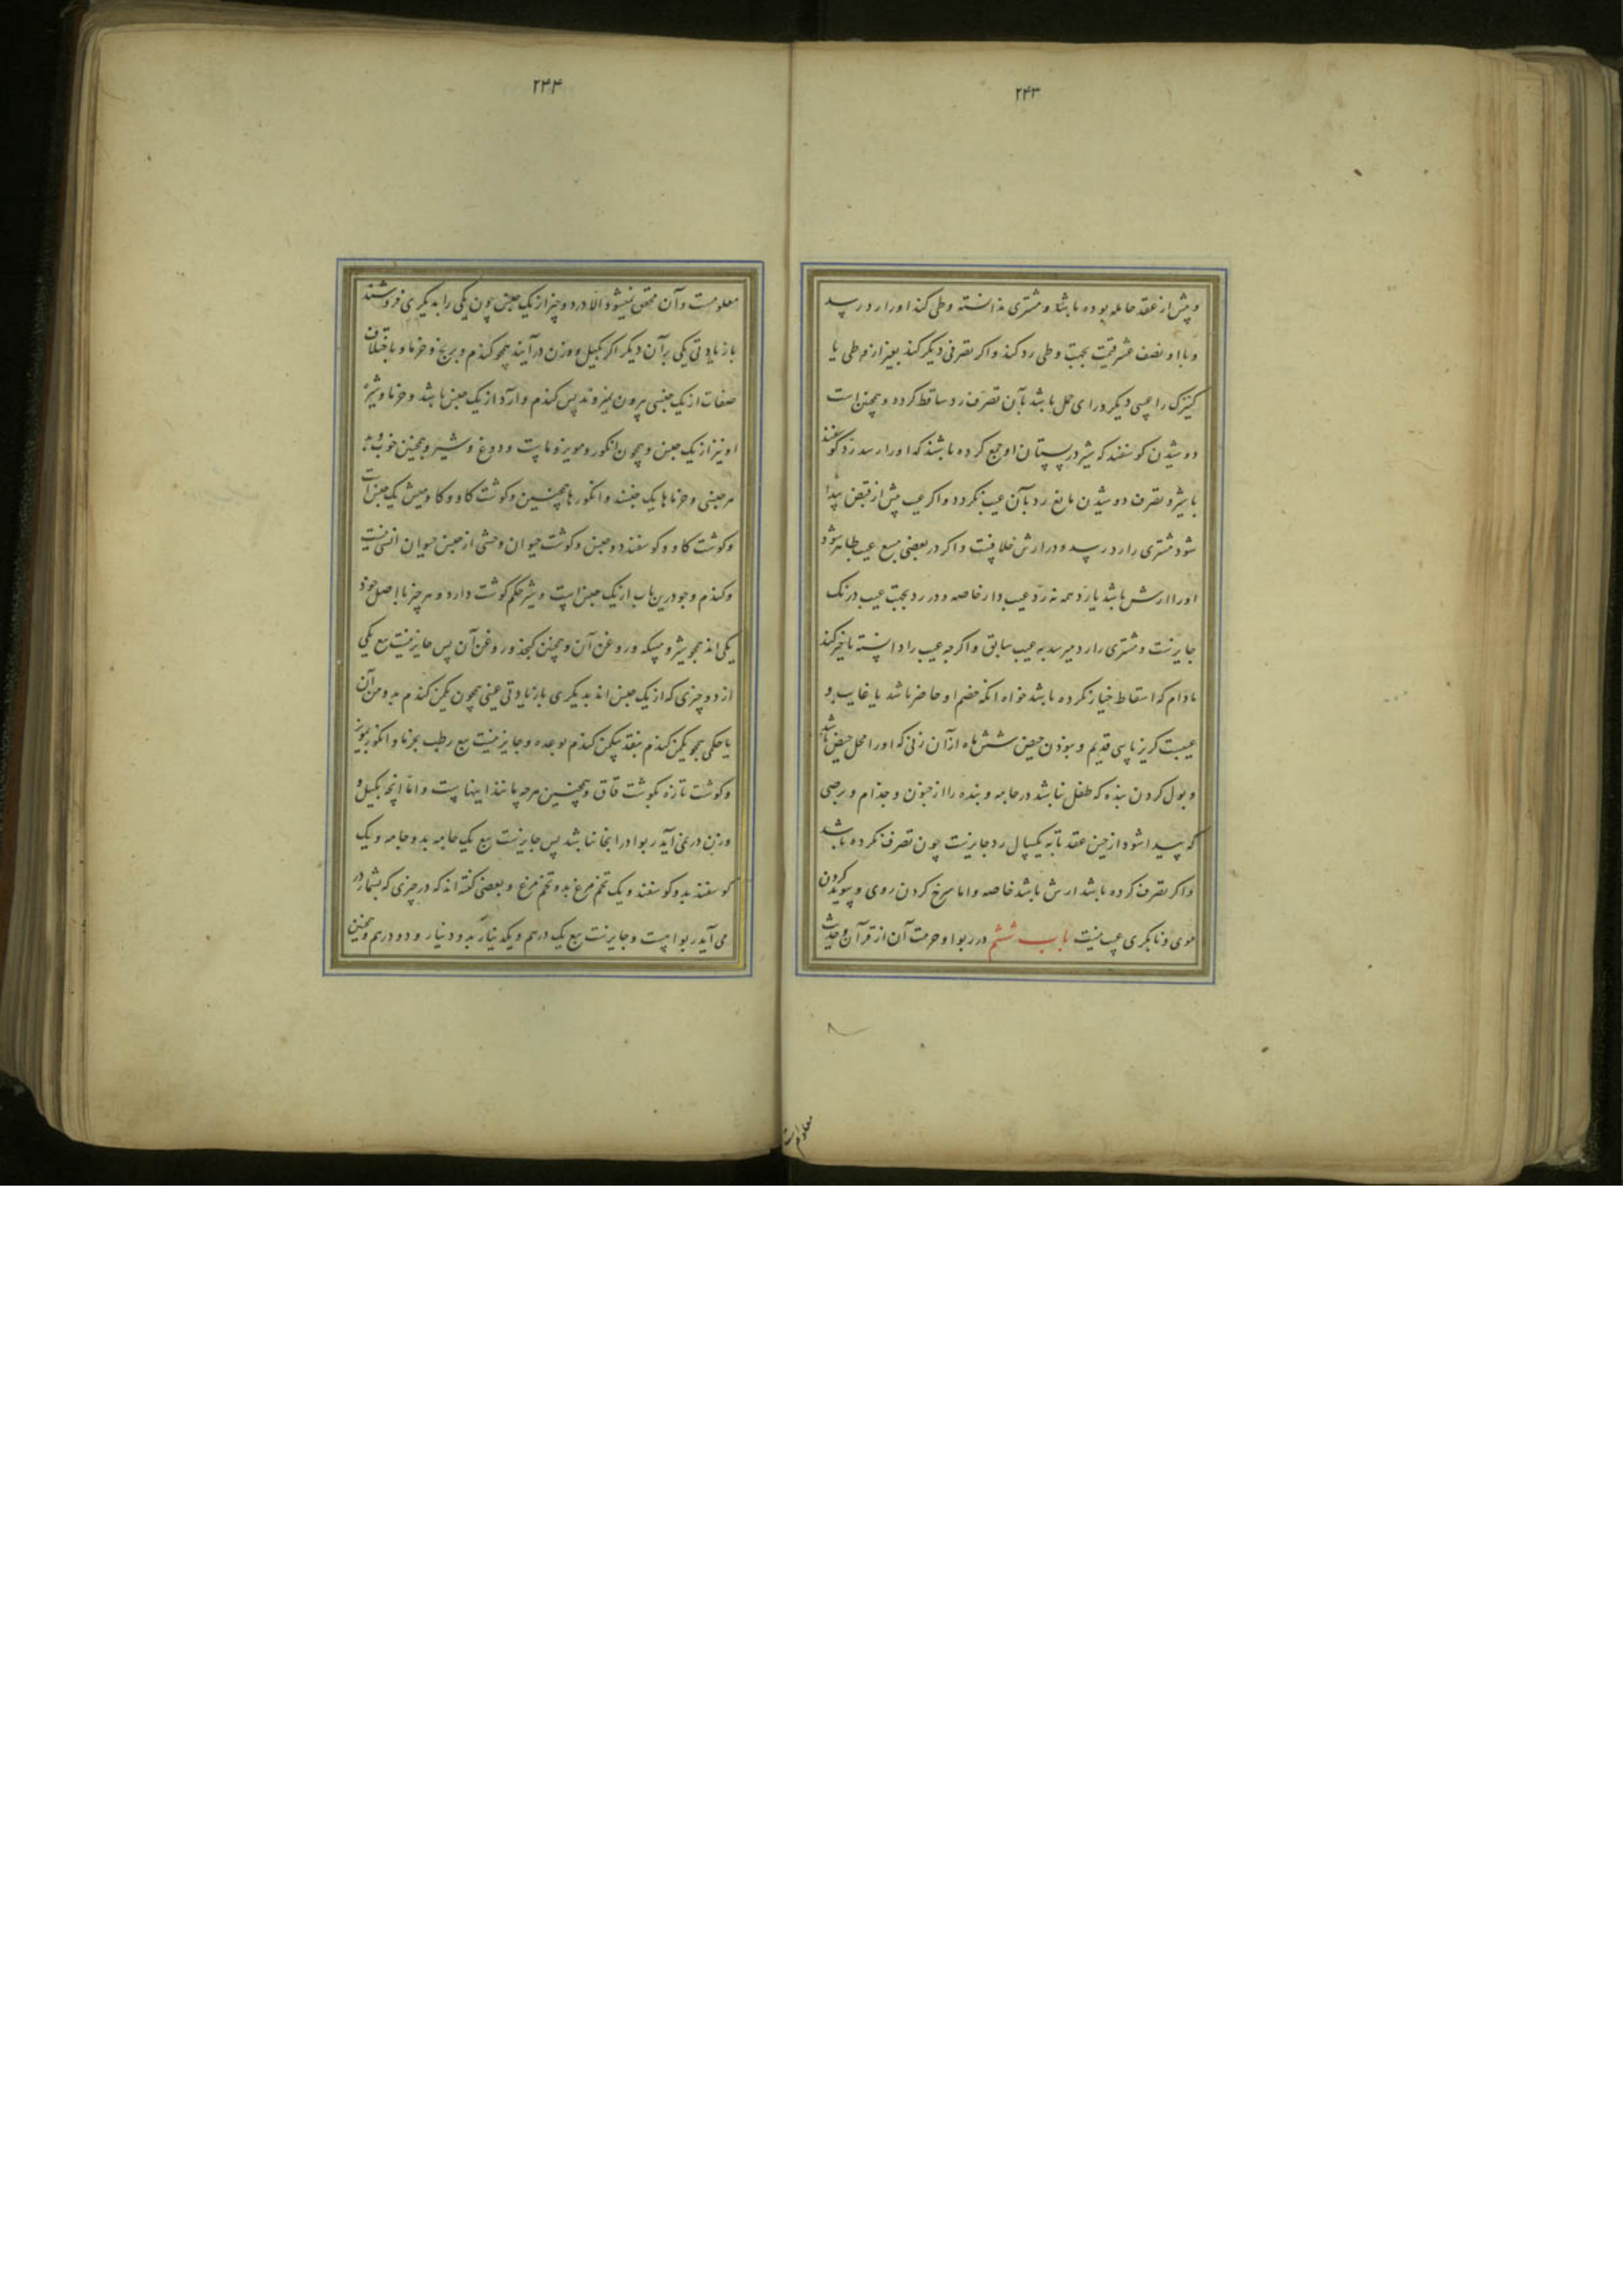 ۲۴۳
و پیش از عقد حامله بوده باشد و مشتری ندانسته وطی کند او را رد رسد
و با او نصف عشر قیمت بجهت وطی رد کند و اکر تصرفی دیکر کند بغیر از وطی یا
کنیزک را عیبی دیکر ورای حمل باشد بآن تصرف رد ساقط کردد و همچنین است
دوشیدن کوسفند که شیر در پستان او جمع کرده باشند که او را رسد رد کوسفند
با شیر و تصرف دوشیدن مانع رد بآن عیب نکردد و اکر عیب پیش از قبض پیدا
شود مشتری را رد رسد و در ارش خلافست و اکر در بعضی مبیع عیب ظاهر شود
او را ارش باشد یا رد همه نه رد عیب دار خاصه و در رد بجهت عیب درنک
جایزست و مشتری را رد میرسد به عیب سابق و اکرچه عیب را دانسته تاخیر کند
مادام که اسقاط خیار نکرده باشد خواه انکه خصم او حاضر باشد یا غایب و
عیبست کریزپایی قدیم و نبودن حیض شش ماه از آن زنی که او را محل حیض باشد
و بول کردن بنده که طفل نباشد در جامه و بنده را از جنون و جذام و برصی
که پیدا شود از حین عقد تا به یکسال رد جایزست چون تصرف نکرده باشد
و اکر تصرف کرده باشد ارش باشد خاصه و اما سرخ کردن روی و پیوند کردن
موی و نابکری عیب نیست باب ششم در ربوا و حرمت آن از قرآن و حدیث
معلومست
۲۴۴
معلومست و آن محقق نمیشود الا در دو چیز از یک جنس چون یکی را به دیکری فروشند
با زیادتی یکی بر آن دیکر اکر بکیل و وزن درآیند همچو کندم و برنج و خرما و باختلاف
صفات از یک جنسی بیرون نمیروند پس کندم و آرد از یک جنس باشد و خرما و شیره
او نیز از یک جنس و همچون انکور و مویز و ماست و دوغ و شیر و همچنین خوب و بد
هر جنسی و خرماها یک جنسند و انکورها همچنین و کوشت کاو و کاومیش یک جنس است
و کوشت کاو و کوسفند دو جنس و کوشت حیوان وحشی از جنس حیوان انسی نیست
و کندم و جو درین باب از یک جنس است و شیر حکم کوشت دارد و هر چیز با اصل خود
یکی اند همچو شیر و مسکه و روغن آن و همچنین کنجد و روغن آن پس جایز نیست بیع یکی
از دو چیزی که از یک جنس اند به دیکری با زیادتی عینی همچون یکمن کندم به دو من آن
یا حکمی همچو یکمن کندم بنقد بیکمن کندم بوعده و جایز نیست بیع رطب بخرما و انکور بمویز
و کوشت تازه بکوشت قاق و همچنین هرچه مانند اینهاست و اما آنچه بکیل و
وزن در نمی آید ربوا در اینجا نباشد پس جایزست بیع یک جامه بدو جامه و یک
کوسفند بدو کوسفند و یک تخم مرغ بدو تخم مرغ و بعضی کفته اند که در چیزی که بشمار در
می آید ربوا هست و جایزست بیع یک درهم و یکدینار بدو دینار و دو درهم و همچنین